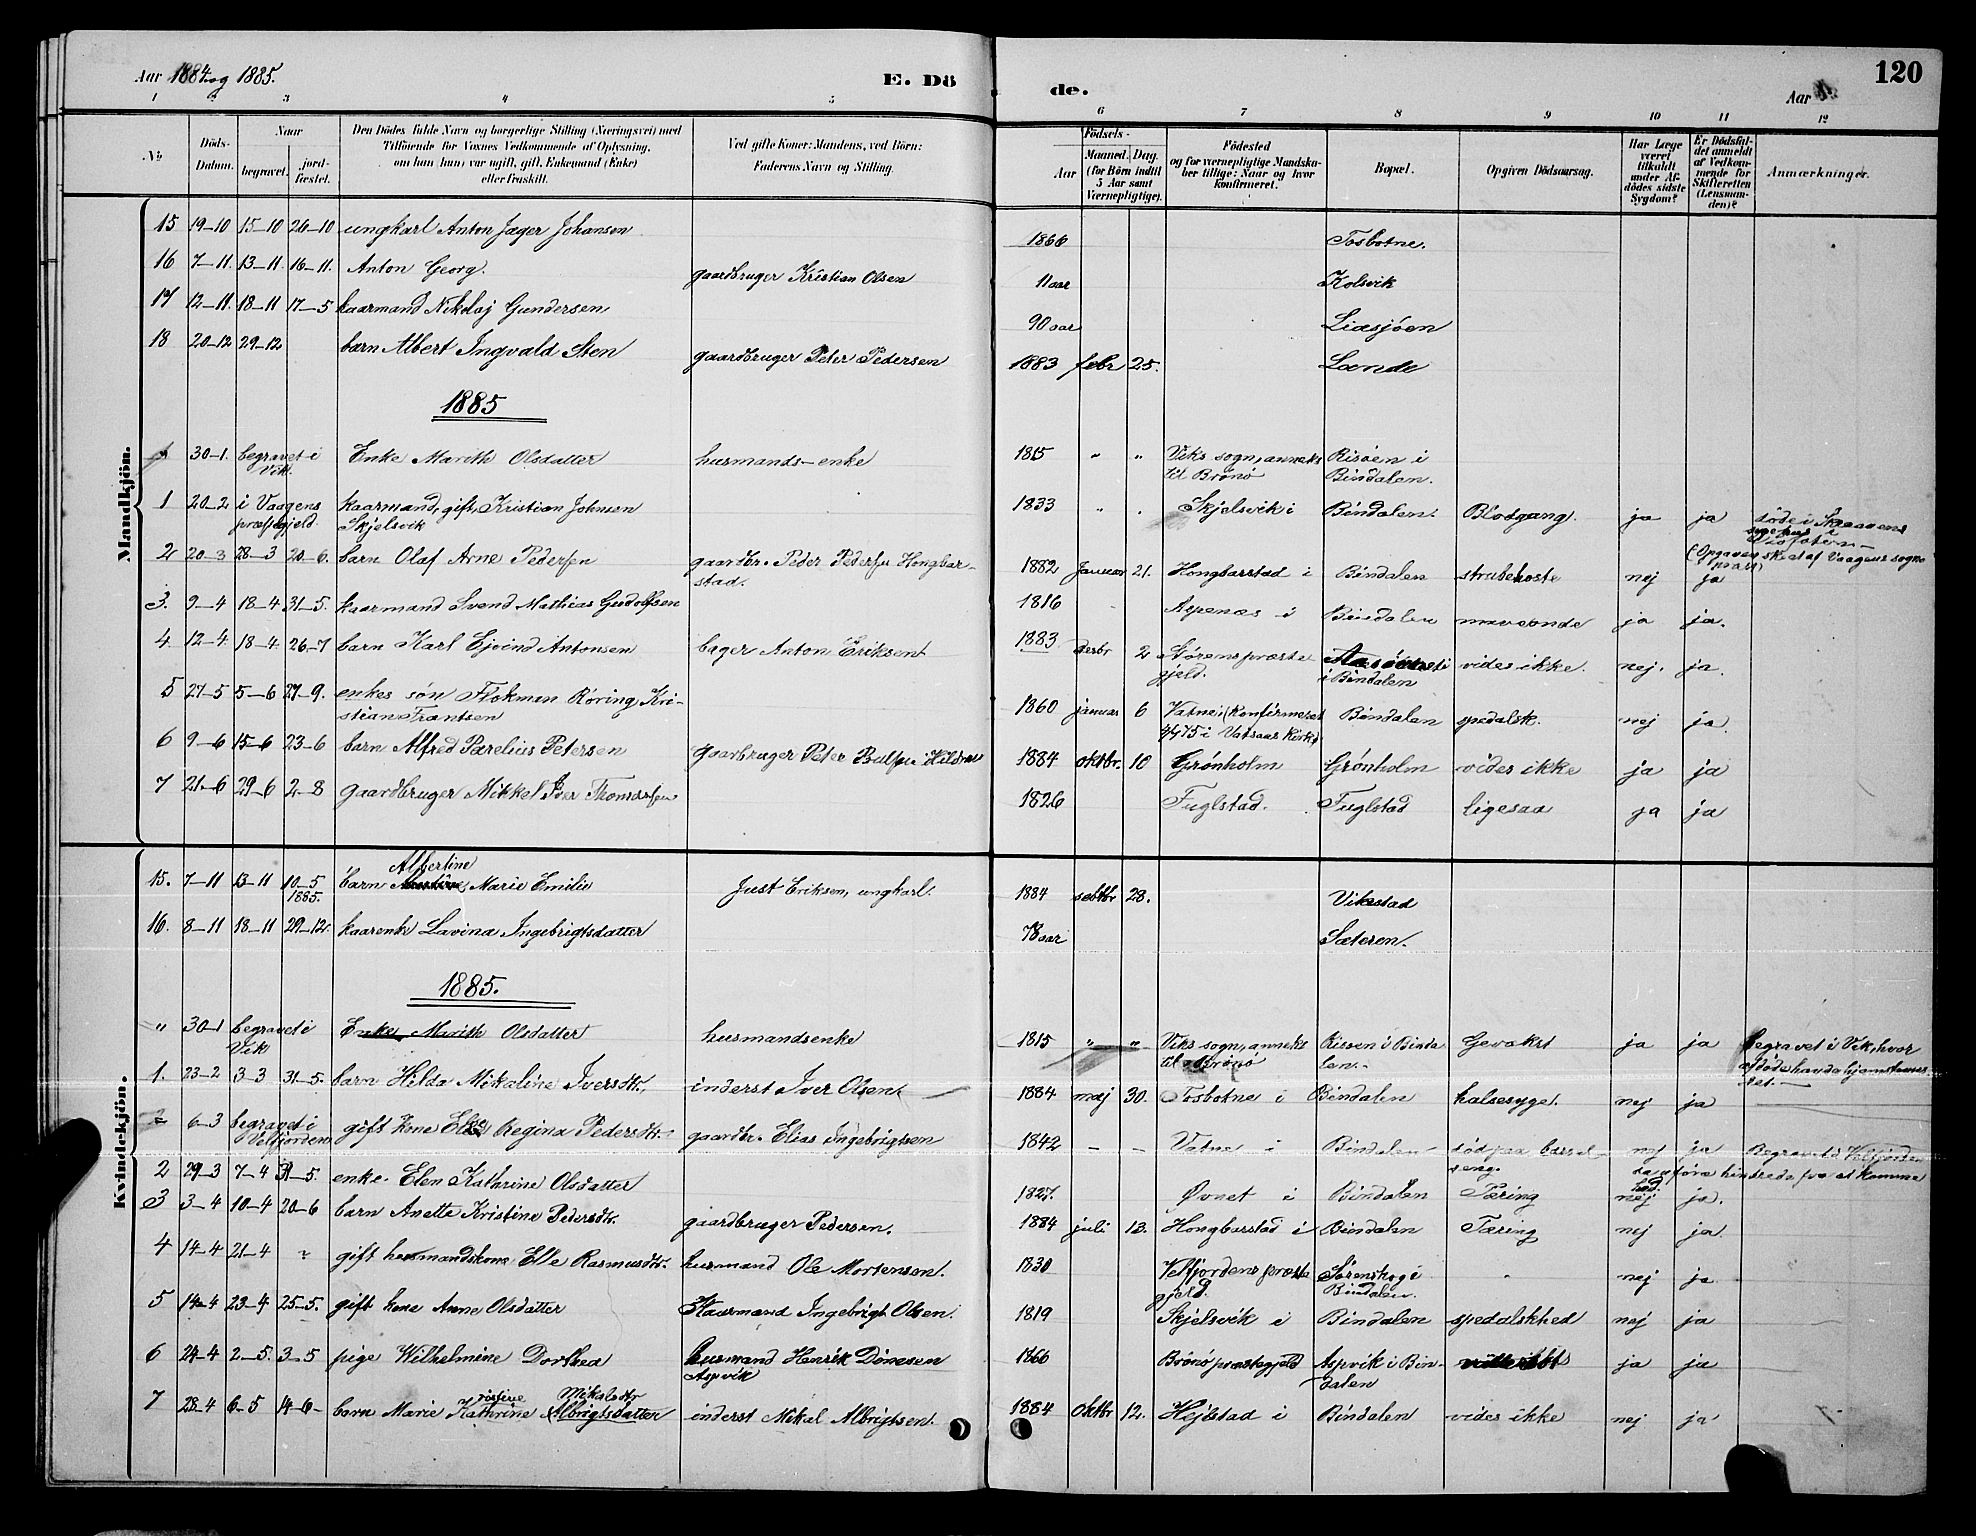 Aar 1884 og 1885.
E. Dö de.
Aar
120
1 2 3 4 5 6 7 8 9 10 11 12
No
Döds-Datum.
Naar
begravet.
jord-fæstet.
Den Dödes fulde Navn og borgerlige Stilling (Næringsvei) med
Tilföiende for Voxnes Vedkommende af Oplysning,
om han (hun) var ugift, gift, Enkemand (Enke)
eller fraskilt.
Ved gifte Koner: Mandens, ved Börn:
Faderens Navn og Stilling.
Födsels-
Aar
Maaned. Dag.
(for Börn indtil
5 Aar samt
Værnepligtige).
Födested
og for værnepligtige Mandska-
ber tillige: Naar og hvor
konfirmeret.
Bopæl.
Opgiven Dödsaarsag.
Har Læge
været
tilkaldt
under Af-
dödes sidste
Sygdom?
Er Dödsfal-
det anmeldt
af Vedkom-
mende for
Skifteretten
(Lensman-
den)?
Anmærkninger.
Mandkjön.
15 19-10 15-10 26-10 ungkarl Anton Jæger Johansen 1866 Tosbotne.
16 7-11 13-11 16-11. Anton Georg. gaardbruger Kristian Olsen 11 aar Kolsvik
17 12-11. 18-11 17-5 kaarmand Nikolaj Gundersen 90 aar Liasjöen
18 20-12 29-12 barn Albert Ingvald Sten gaardbruger Peter Pedersen 1883 febr 25. Lande
1885
30-1. begravet i Enke Marith Olsdatter husmands-enke 1815 " " Viks sogn, anneks Risöen i
Vik. til Brönö Bindalen.
1 20-2 i Vaagens kaarmand, gift, Kristian Johnsen 1833 " " Skjelsvik i Bindalen. Blodgang. ja ja döde i Skraavens
præstegjeld. Skjelsvik sygehus i
Lofoten-
2 20-3 28-3 20-6. barn Olaf Arne Pedersen gaardbr. Peder Pedersen Hongbar- 1882 Januar 21. Hongbarstad i Bindalen strubehoste nej ja (Opgaven sked af Vaagens sogne
stad. præst)
3. 9-4 18-4 31-5. kaarmand Svend Mathias Gudolfsen 1816 Aspenæs i Bindalen maveonde ja ja.
4. 12-4. 18-4. 26-7 barn Karl Ejvind Antonsen bager Anton Eriksen 1883 desbr 2 Störens præste- vides ikke. nej. ja.
gjeld. i Bindalen
5 27-5 5-6 27-9. enkes sön Flokman Röring Kri- 1860 januar 6 Vatne, (konfirmeret Bindalen spedalsk. nej ja.
stian Frantsen 4/7 75 i Vatsaas kirke
6 9-6 15-6 23-6 barn Alfred Parelius Petersen gaarbruger Peter i Hildnes 1884 oktbr. 10 Grönholm Grönholm vides ikke ja ja
7 21-6 29-6 2-8 gaardbruger Mikkel Iver Thomassen 1826 Fuglstad. Fuglstad ligesaa ja ja
Kvindekjön.
Albertine
15. 7-11 13-11 10-5 barn Marie Emilie Just Eriksen, ungkarl. 1884 sebtbr 28. Vikestad
1885.
16. 8-11 18-11 29-12. kaarenke Lavina Ingebrigtsdatter 78 aar Sæteren.
1885.
" 30-1 begravet i Enke Marith Olsdatter husmandsenke 1815 " " Viks sogn, anneks Risöen i Binda Gevækst ja ja begravet i Vik, hvor
Vik til Brönö len.- afdöde havde hjemstavns-
ret.-
1. 23-2 3-3 31-5. barn Hilda Mikaline Iversdtr. inderst Iver Olsen. 1884 maj 30. Tosbotne i Bindalen halsesyge. nej ja
6-3 begravet i gift kone Regina Pedersdtr. gaardbr. Elias Ingebrigtsen 1842 - - Vatne i Bindalen död paa barsel- nej ja Begravet i Velfjorden
Velfjorden seng. da före hindrede fra at komme
2 29-3 7-4 31-5. enke. Elen Kathrine Olsdatter 1827. Övnet i Bindalen Tæring nej ja.
3 3-4 10-4 20-6 barn Anette Kristine Pedersdtr. gaardbruger Pedersen. 1884 juli 13. Hongbarstad i Bindalen Tæring nej ja.
4 14-4 21-4 gift husmandskone Elle Rasmusdtr. husmand Ole Mortensen. 1830 Velfjordens præste Sörenskog i nej ja
gjeld. Bindalen.
5 14-4 23-4 25-5. gift kone Anne Olsdatter Kaarmand Ingebrigt Olsen. 1819 Skjelsvik i Bindalen spedalskhed nej ja
6 24-4 2-5. 3-5 pige Wilhelmine Dorthea husmand Henrik Dönesen 1866 Brönö præstegjeld Aspvik i Bin- ja ja
Aspvik dalen
ristine Mikalsdtr
7 28-4 6-5 14-6- barn Marie Kathrine Albrigtsdatter inderst Mikal Albrigtsen. 1884 Oktbr 12. Hejlstad i Bindalen vides ikke nej ja